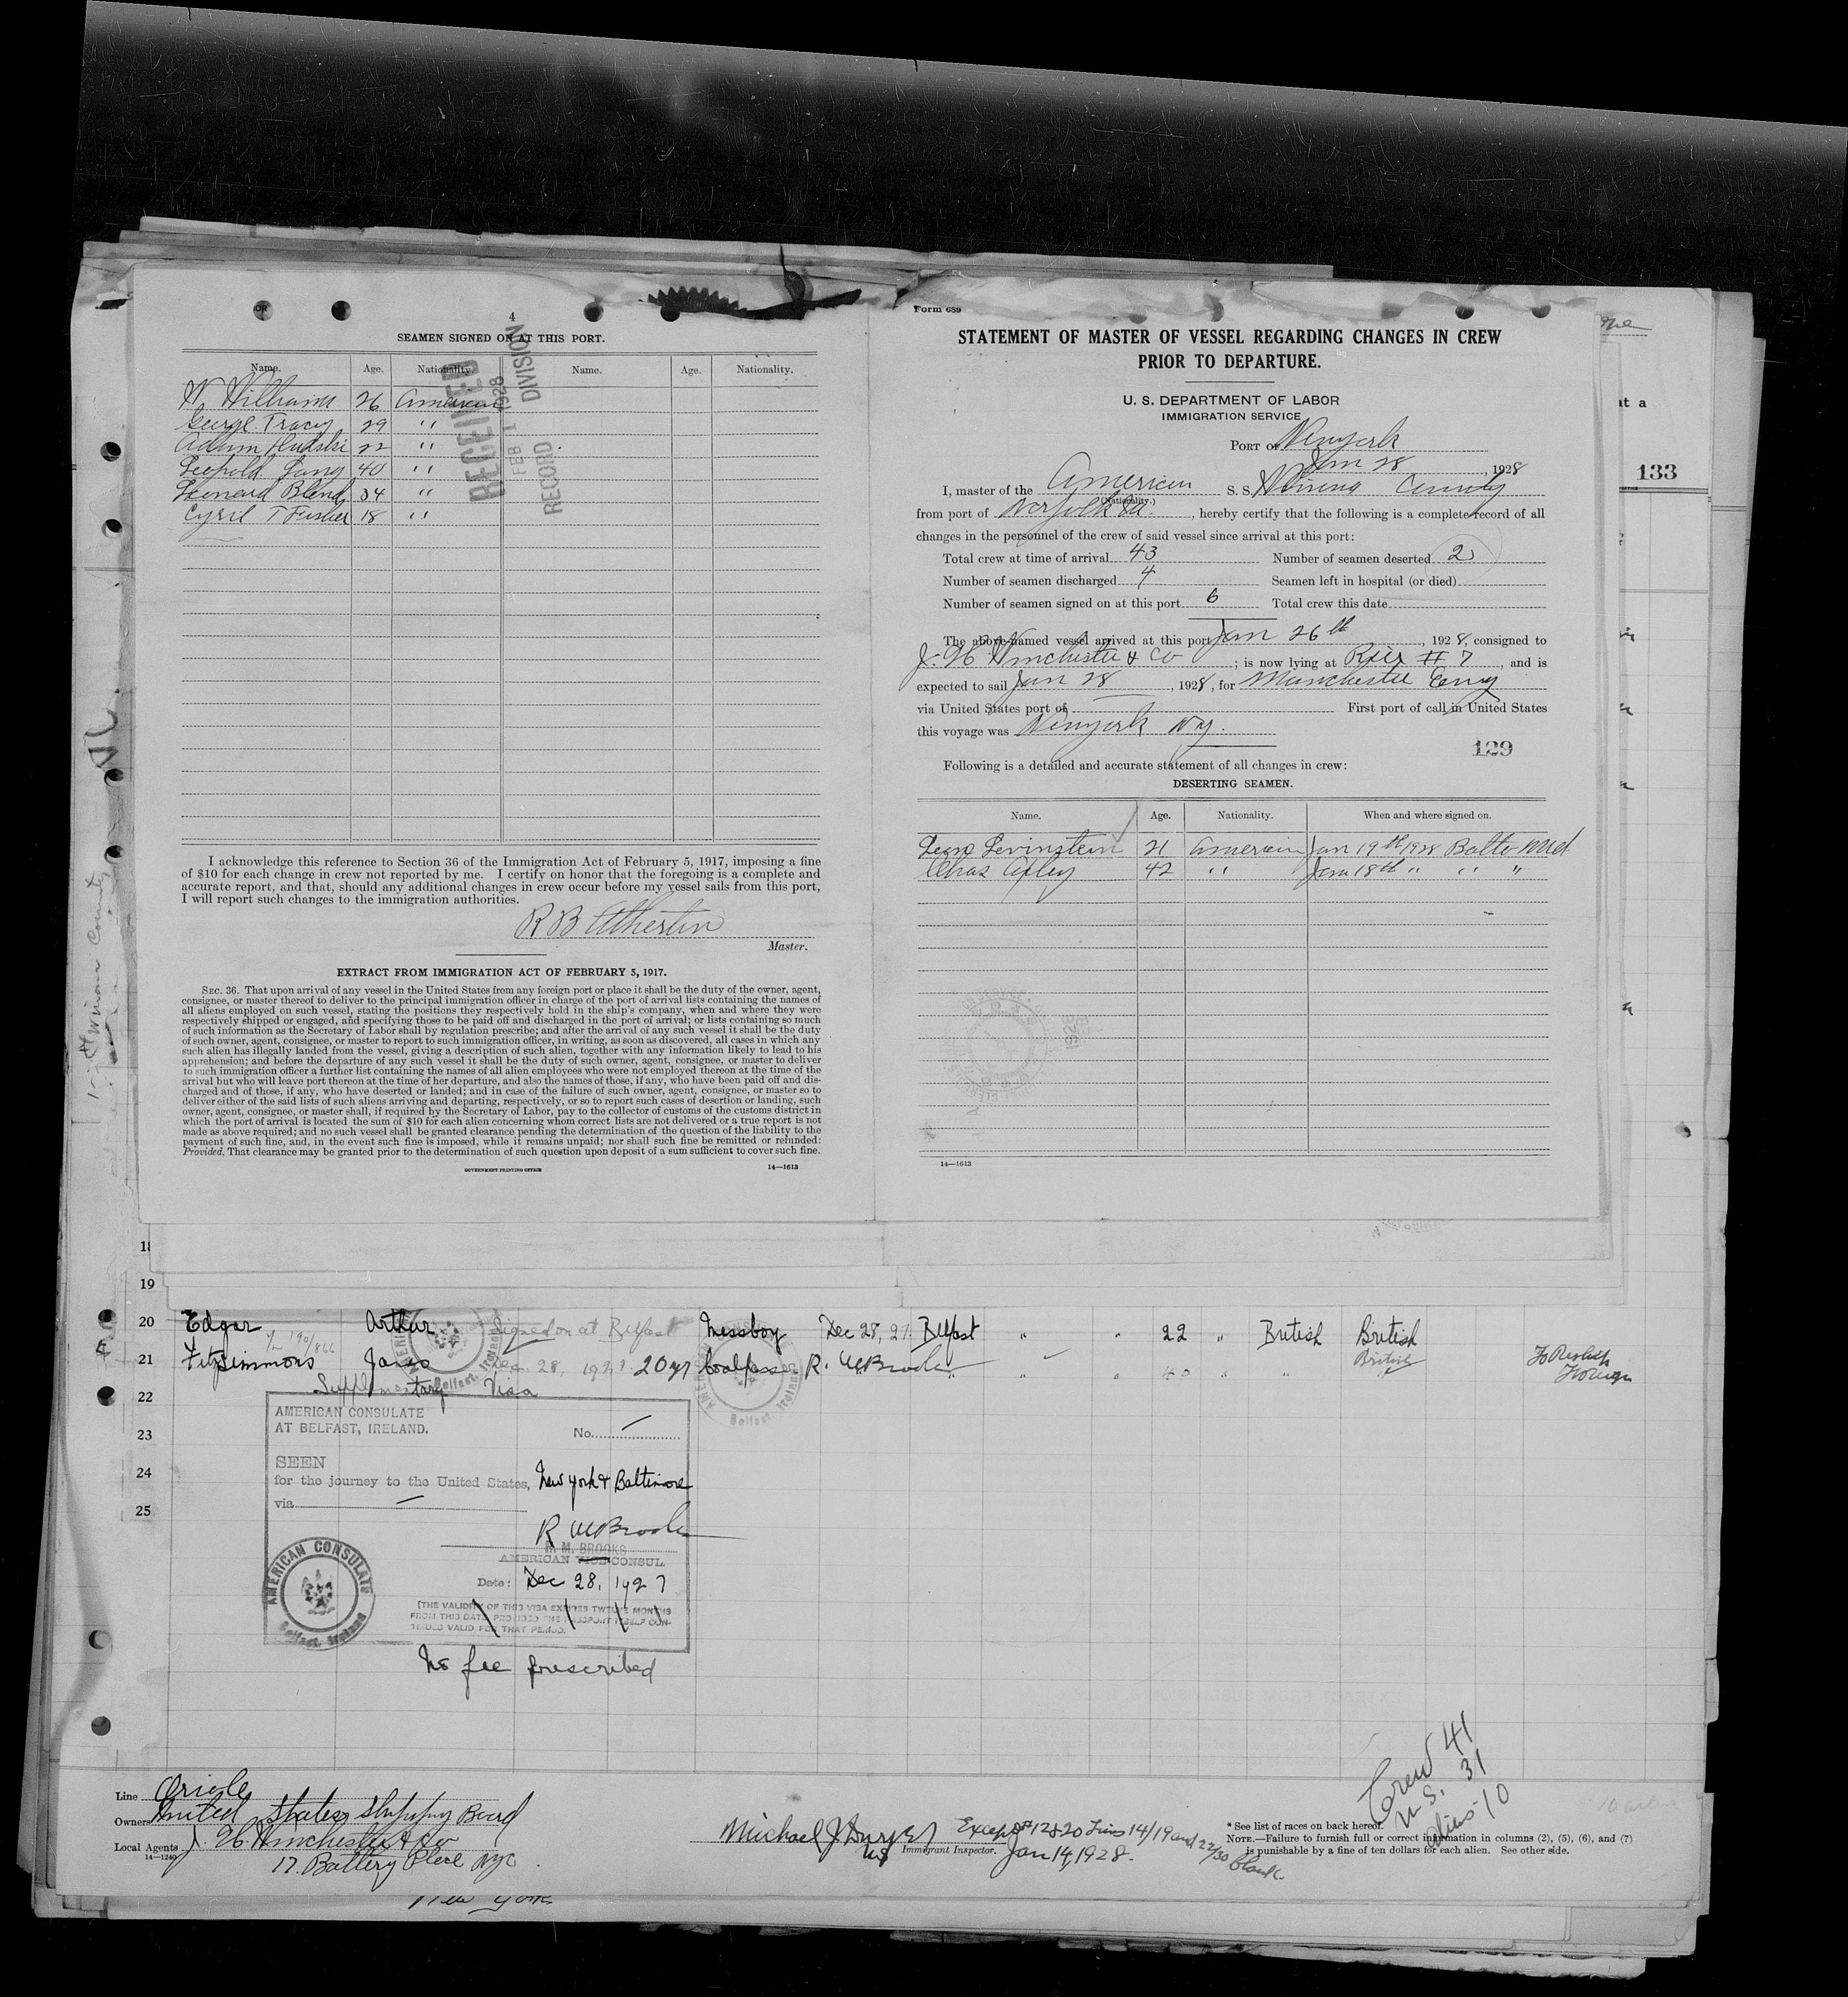 4
SEAMEN SIGNED ON AT THIS PORT.
Name. Age. Nationality. Name. Age. Nationality.
W Williams 26 American
George Tracy 29 "
Adam 22 "
Leopold 40 "
Leonard Blend 34 "
Cyril T Fisher 18 "
RECEIVED
FEB 1 1928
RECORD DIVISION
I acknowledge this reference to Section 36 of the Immigration Act of February 5, 1917, imposing a fine
of $10 for each change in crew not reported by me. I certify on honor that the foregoing is a complete and
accurate report, and that, should any additional changes in crew occur before my vessel sails from this port,
I will report such changes to the immigration authorities.
R B Etherton
Master.
EXTRACT FROM IMMIGRATION ACT OF FEBRUARY 5, 1917.
SEC. 36. That upon arrival of any vessel in the United States from any foreign port or place it shall be the duty of the owner, agent,
consignee, or master thereof to deliver to the principal immigration officer in charge of the port of arrival lists containing the names of
all aliens employed on such vessel, stating the positions they respectively hold in the ship's company, when and where they were
respectively shipped or engaged, and specifying those to be paid off and discharged in the port of arrival; or lists containing so much
of such information as the Secretary of Labor shall by regulation prescribe; and after the arrival of any such vessel it shall be the duty
of such owner, agent, consignee, or master to report to such immigration officer, in writing, as soon as discovered, all cases in which any
such alien has illegally landed from the vessel, giving a description of such alien, together with any information likely to lead to his
apprehension; and before the departure of any such vessel it shall be the duty of such owner, agent, consignee, or master to deliver
to such immigration officer a further list containing the names of all alien employees who were not employed thereon at the time of the
arrival but who will leave port thereon at the time of her departure, and also the names of those, if any, who have been paid off and dis-
charged and of those, if any, who have deserted or landed; and in case of the failure of such owner, agent, consignee, or master so to
deliver either of the said lists of such aliens arriving and departing, respectively, or so to report such cases of desertion or landing, such
owner, agent, consignee, or master shall, if required by the Secretary of Labor, pay to the collector of customs of the customs district in
which the port of arrival is located the sum of $10 for each alien concerning whom correct lists are not delivered or a true report is not
made as above required; and no such vessel shall be granted clearance pending the determination of the question of the liability to the
payment of such fine, and, in the event such fine is imposed, while it remains unpaid; nor shall such fine be remitted or refunded:
Provided, That clearance may be granted prior to the determination of such question upon deposit of a sum sufficient to cover such fine.
GOVERNMENT PRINTING OFFICE 14—1613
Form 689
STATEMENT OF MASTER OF VESSEL REGARDING CHANGES IN CREW
PRIOR TO DEPARTURE.
U. S. DEPARTMENT OF LABOR
IMMIGRATION SERVICE
PORT OF New york
Jan 28, 1928
I, master of the American S. S. Winona County
(Nationality.)
from port of Norfolk Va., hereby certify that the following is a complete record of all
changes in the personnel of the crew of said vessel since arrival at this port:
Total crew at time of arrival 43 Number of seamen deserted 2
Number of seamen discharged 4 Seamen left in hospital (or died)
Number of seamen signed on at this port 6 Total crew this date
The above-named vessel arrived at this port Jan 26th, 1928, consigned to
J. H. Winchester & Co; is now lying at Pier # 7, and is
expected to sail Jan 28, 1928, for Manchester Eng
via United States port of First port of call in United States
this voyage was New york NY.
129
Following is a detailed and accurate statement of all changes in crew:
DESERTING SEAMEN.
Name. Age. Nationality. When and where signed on.
Leon Levinstein 21 American Jan 19th 1928 Balto Md
Chas 42 " Jan 18th " " "
14—1613
133
19
20 Edgar Arthur Signed on at Belfast Messboy Dec 28, 27 Belfast " " 22 " British British
21 Fitzsimmons James Dec. 28, 1927. 20 yr Coalpasser R. M Brooks " " 40 " " British
22 Supplementary Visa
23
24
25
AMERICAN CONSULATE
AT BELFAST, IRELAND.
No.
SEEN
for the journey to the United States, New york & Baltimore
via
R M Brooks
R. M. BROOKS
AMERICAN VICE CONSUL.
Date: Dec 28, 1927
[THE VALIDITY OF THIS VISA EXPIRES TWELVE MONTHS
FROM THIS DATE PROVIDED THE PASSPORT ITSELF CON-
TINUES VALID FOR THAT PERIOD.
AMERICAN CONSULATE
Belfast, Ireland
No fee prescribed
Crew 41
U.S. 31
Aliens 10
Line Oriole
Owners United States Shipping Board
Local Agents J. H. Winchester & Co
14—1240
17 Battery Place NYC
Immigrant Inspector.
Jan 14, 1928.
* See list of races on back hereof.
NOTE.—Failure to furnish full or correct information in columns (2), (5), (6), and (7)
is punishable by a fine of ten dollars for each alien. See other side.
New York